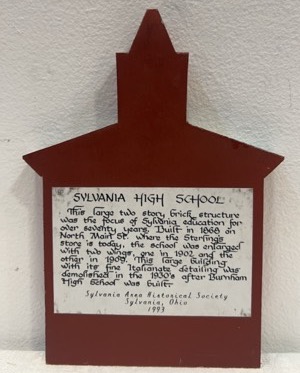 SYLVANIA HIGH SCHOOL
This large two story, brick structure
was the focus of Sylvania education for
over seventy years. Built in 1868 on
North Main St. where the Sterling's
store is today, the school was enlarged
with two wings, one in 1902 and the
other in 1909. This large building
with its fine Italianate detailing was
demolished in the 1930's after Burnham
High School was built.
Sylvania Area Historical Society
Sylvania, Ohio
1993